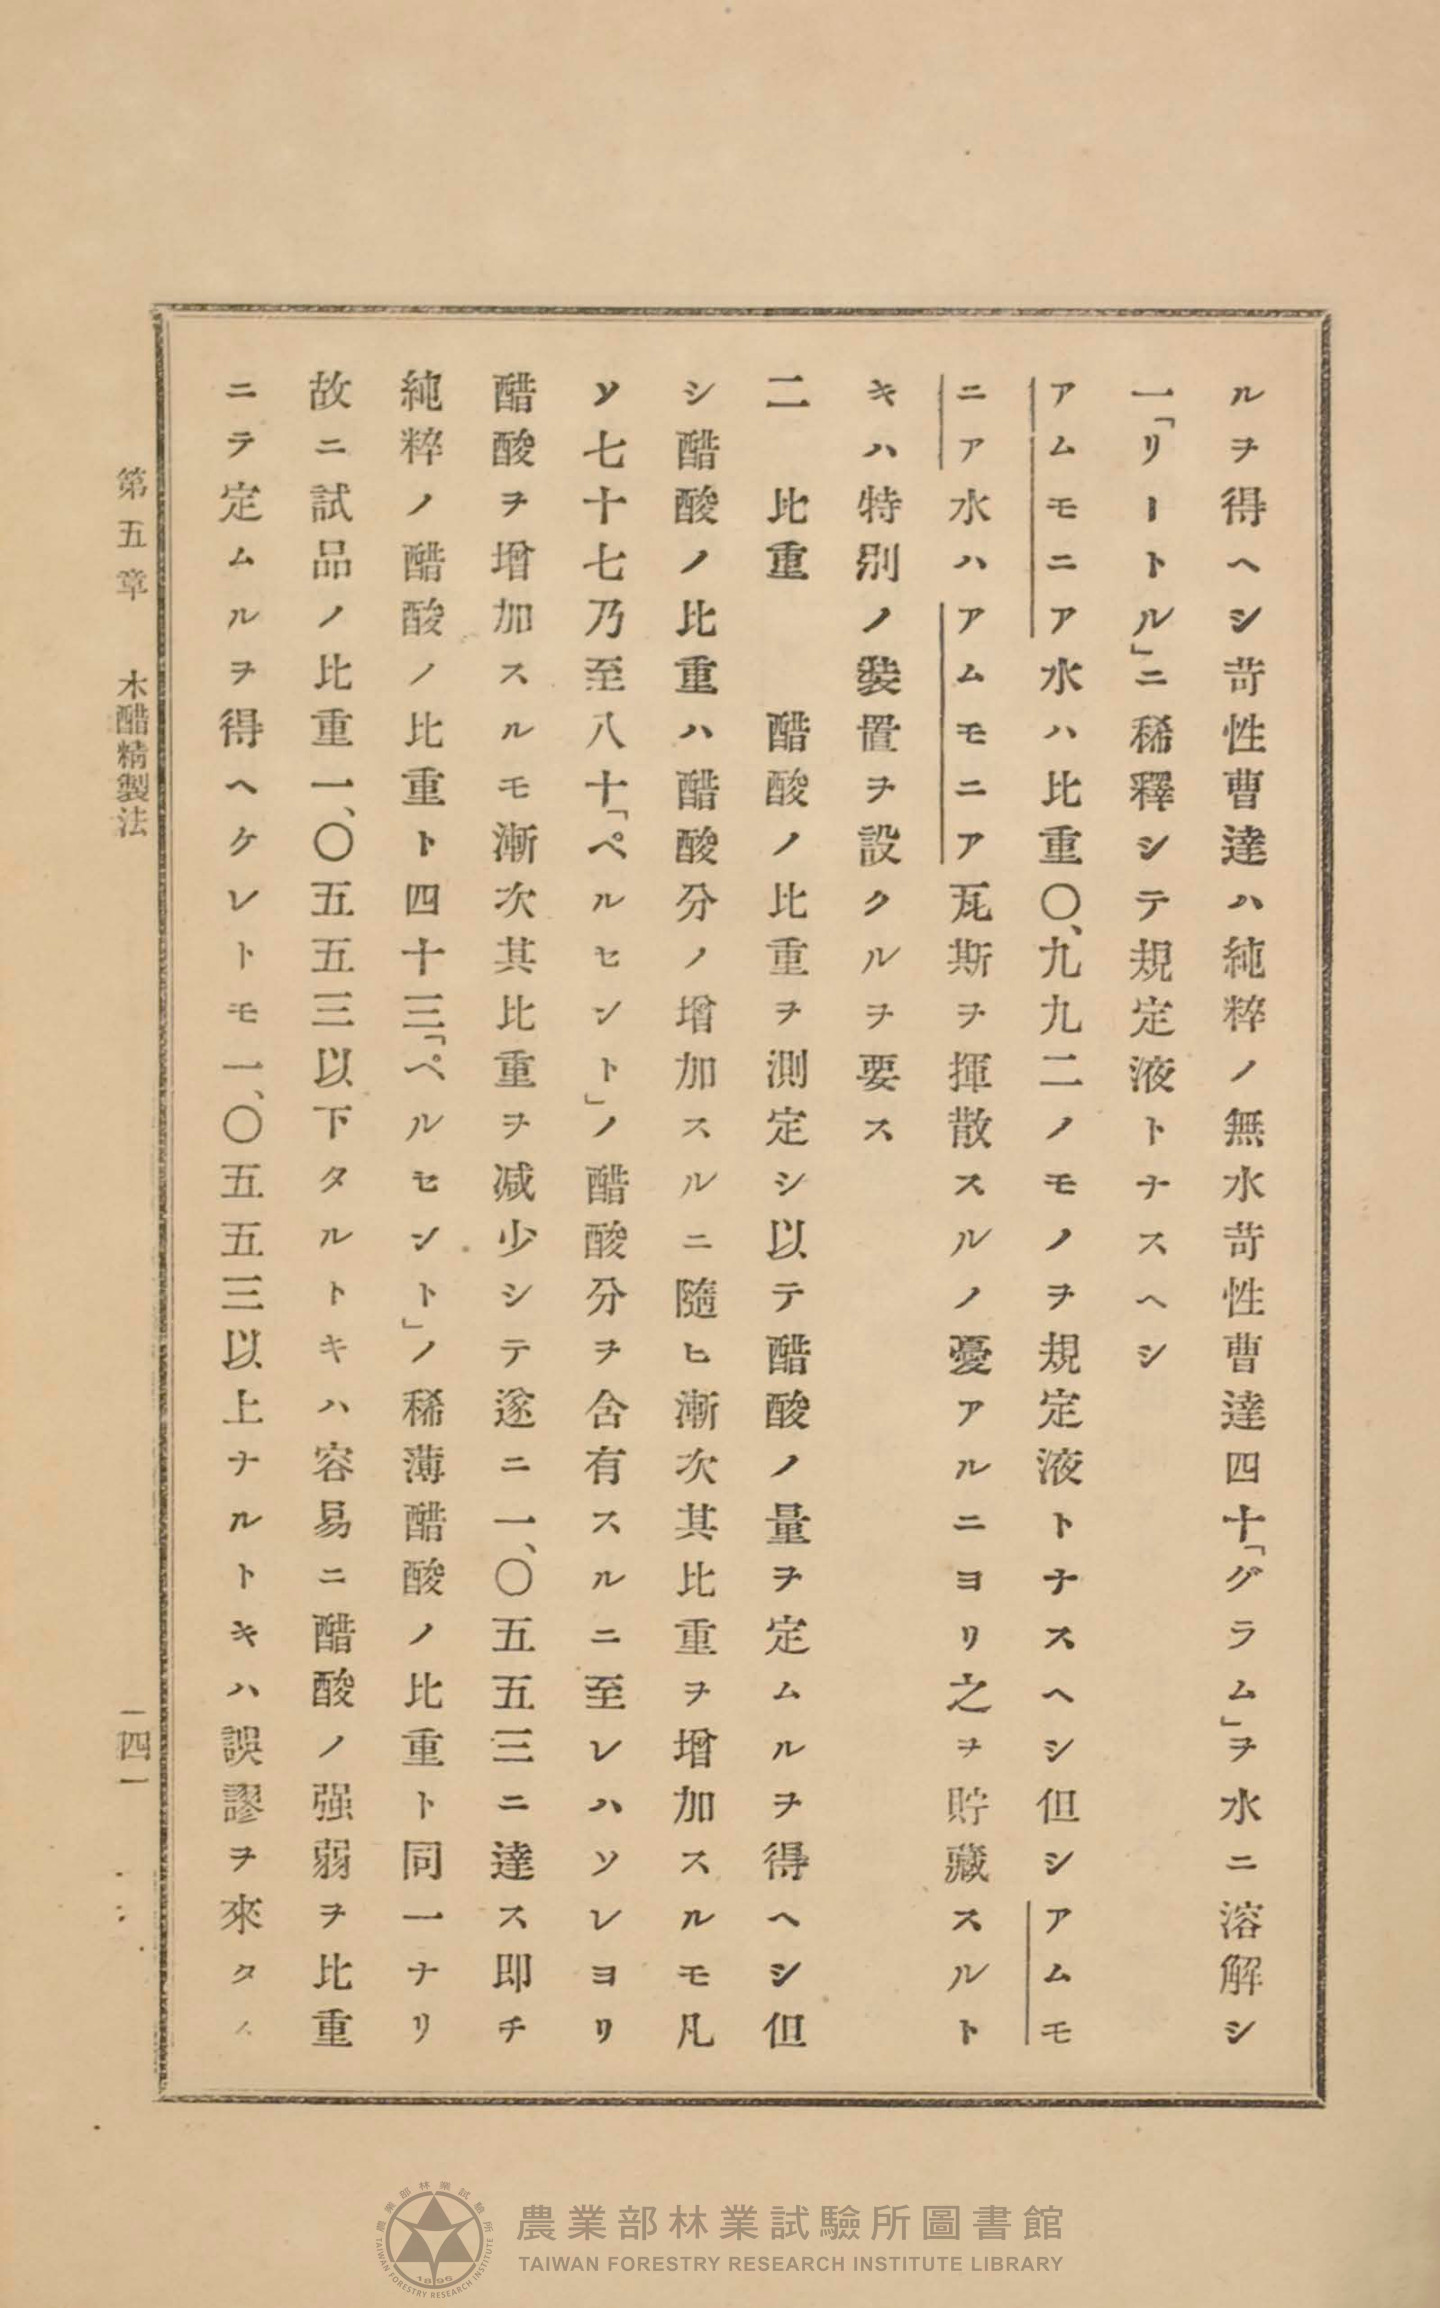 ルヲ得ヘシ苛性曹達ハ純粹ノ無水苛性曹達四十「グラム」ヲ水ニ溶解シ
一「リートル」ニ稀釋シテ規定液トナスヘシ
アムモニア水ハ比重〇、九九二ノモノヲ規定液トナスヘシ但シアムモ
ニア水ハアムモニア瓦斯ヲ揮散スルノ憂アルニヨリ之ヲ貯藏スルト
キハ特別ノ裝置ヲ設クルヲ要ス
二　比重　醋酸ノ比重ヲ測定シ以テ醋酸ノ量ヲ定ムルヲ得ヘシ但
シ醋酸ノ比重ハ醋酸分ノ增加スルニ隨ヒ漸次其比重ヲ增加スルモ凡
ソ七十七乃至八十「ペルセント」ノ醋酸分ヲ含有スルニ至レハソレヨリ
醋酸ヲ增加スルモ漸次其比重ヲ減少シテ遂ニ一、〇五五三ニ達ス即チ
純粹ノ醋酸ノ比重ト四十三「ペルセント」ノ稀薄醋酸ノ比重ト同一ナリ
故ニ試品ノ比重一、〇五五三以下タルトキハ容易ニ醋酸ノ强弱ヲ比重
ニテ定ムルヲ得ヘケレトモ一、〇五五三以上ナルトキハ誤謬ヲ來タス
第五章　木醋精製法　一四一
農業部林業試驗所圖書館
TAIWAN FORESTRY RESEARCH INSTITUTE LIBRARY
農業部林業試驗所
TAIWAN FORESTRY RESEARCH INSTITUTE
1896